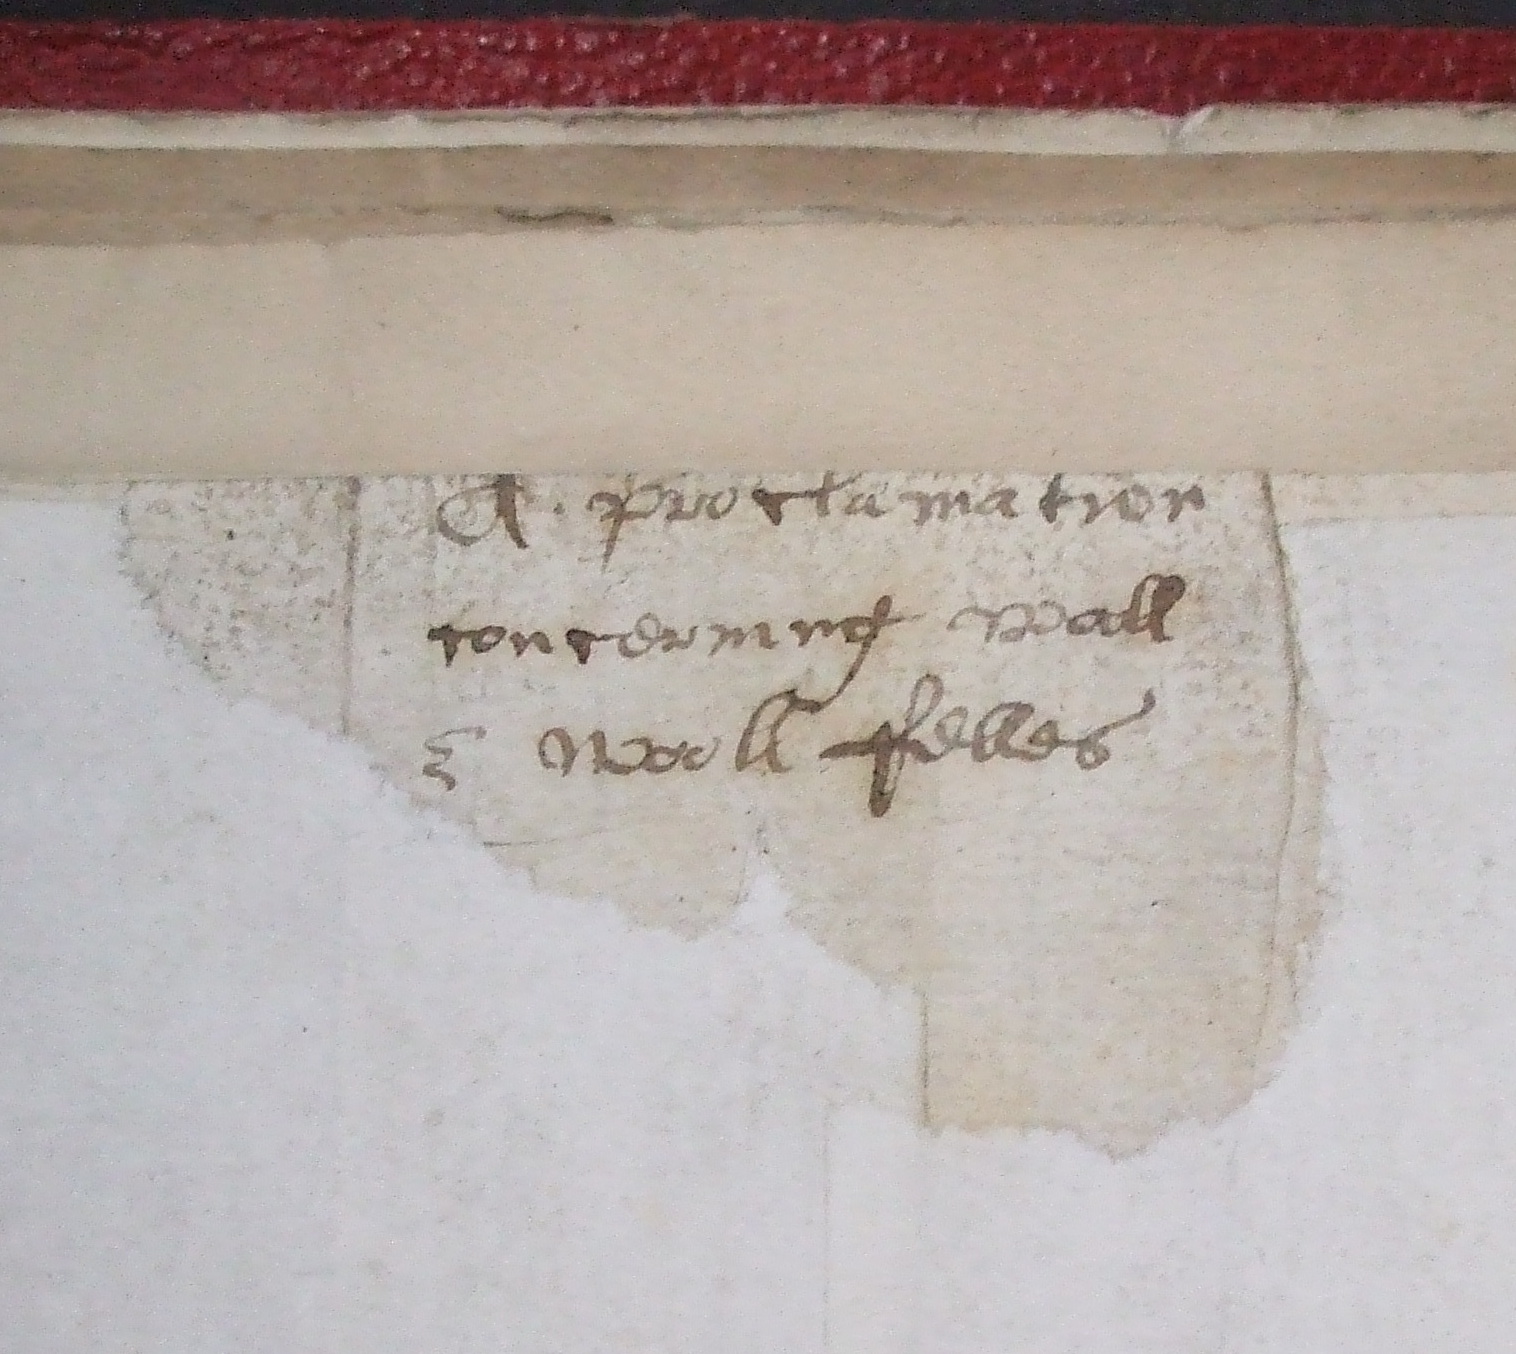 A. proclamation
concerning Wall
& Wooll felles